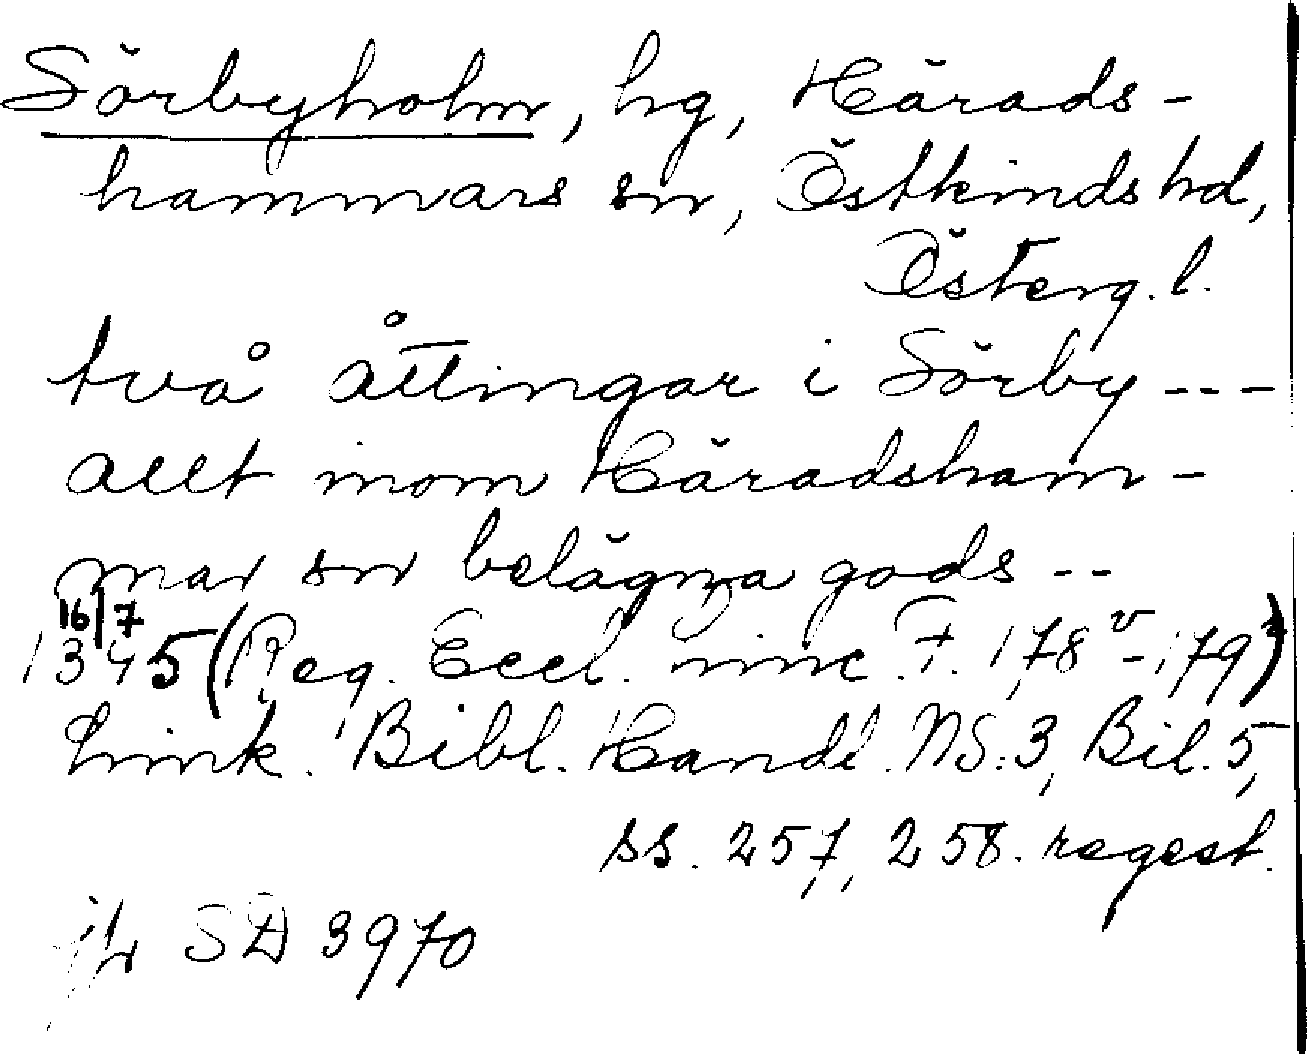 Sörbyholm, hg, Härads-
hammars sn, Östkinds hd,
Österg. l.
två åttingar i Sörby ---
allt inom Häradsham-
mar sn belägna gods --
16/7
1345 (Reg. Eccl. Linc. F. 178v-179r)
Link. Bibl. Handl. NS:3, Bil. 5,
ss. 257, 258. regest.
jfr SD 3970